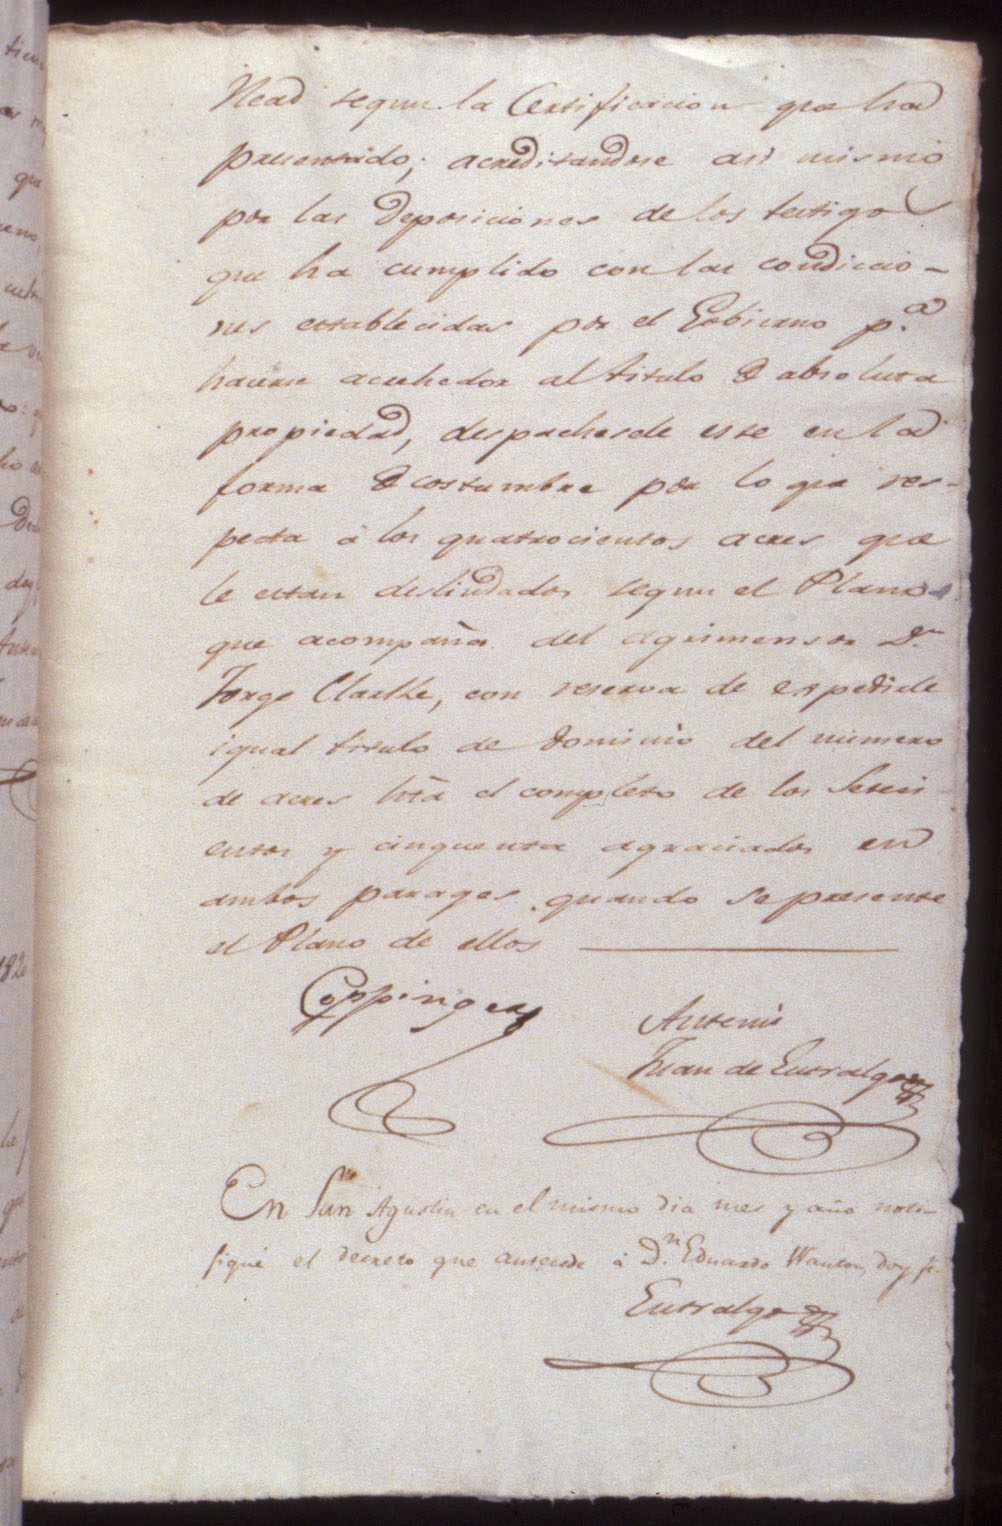 Head segun la Certificacion que ha
presentado; acreditandose asi mismo
por las deposiciones de los testigos
que ha cumplido con las condiccio-
nes establecidas por el Gobierno p.a
hacerse acrehedor al titulo de absoluta
propiedad, despachesele este en la
forma de costumbre por lo que res-
pecta á los quatrocientos acres que
le estan deslindados segun el Plano
que acompaña del Agrimensor Dn
Jorge Clarke, con reserva de expedirle
igual titulo de dominio del numero
de acres htã el completo de los Seteci
entos y cinquenta agraciados en
ambos parages quando se presente
el Plano de ellos
Coppinger
Antemi
Juan de Entralgo
En San Agustin en el mismo dia mes y año noti-
fiqué el decreto que antecede á D.n Eduardo Wanton, doy fe.
Entralgo
1820